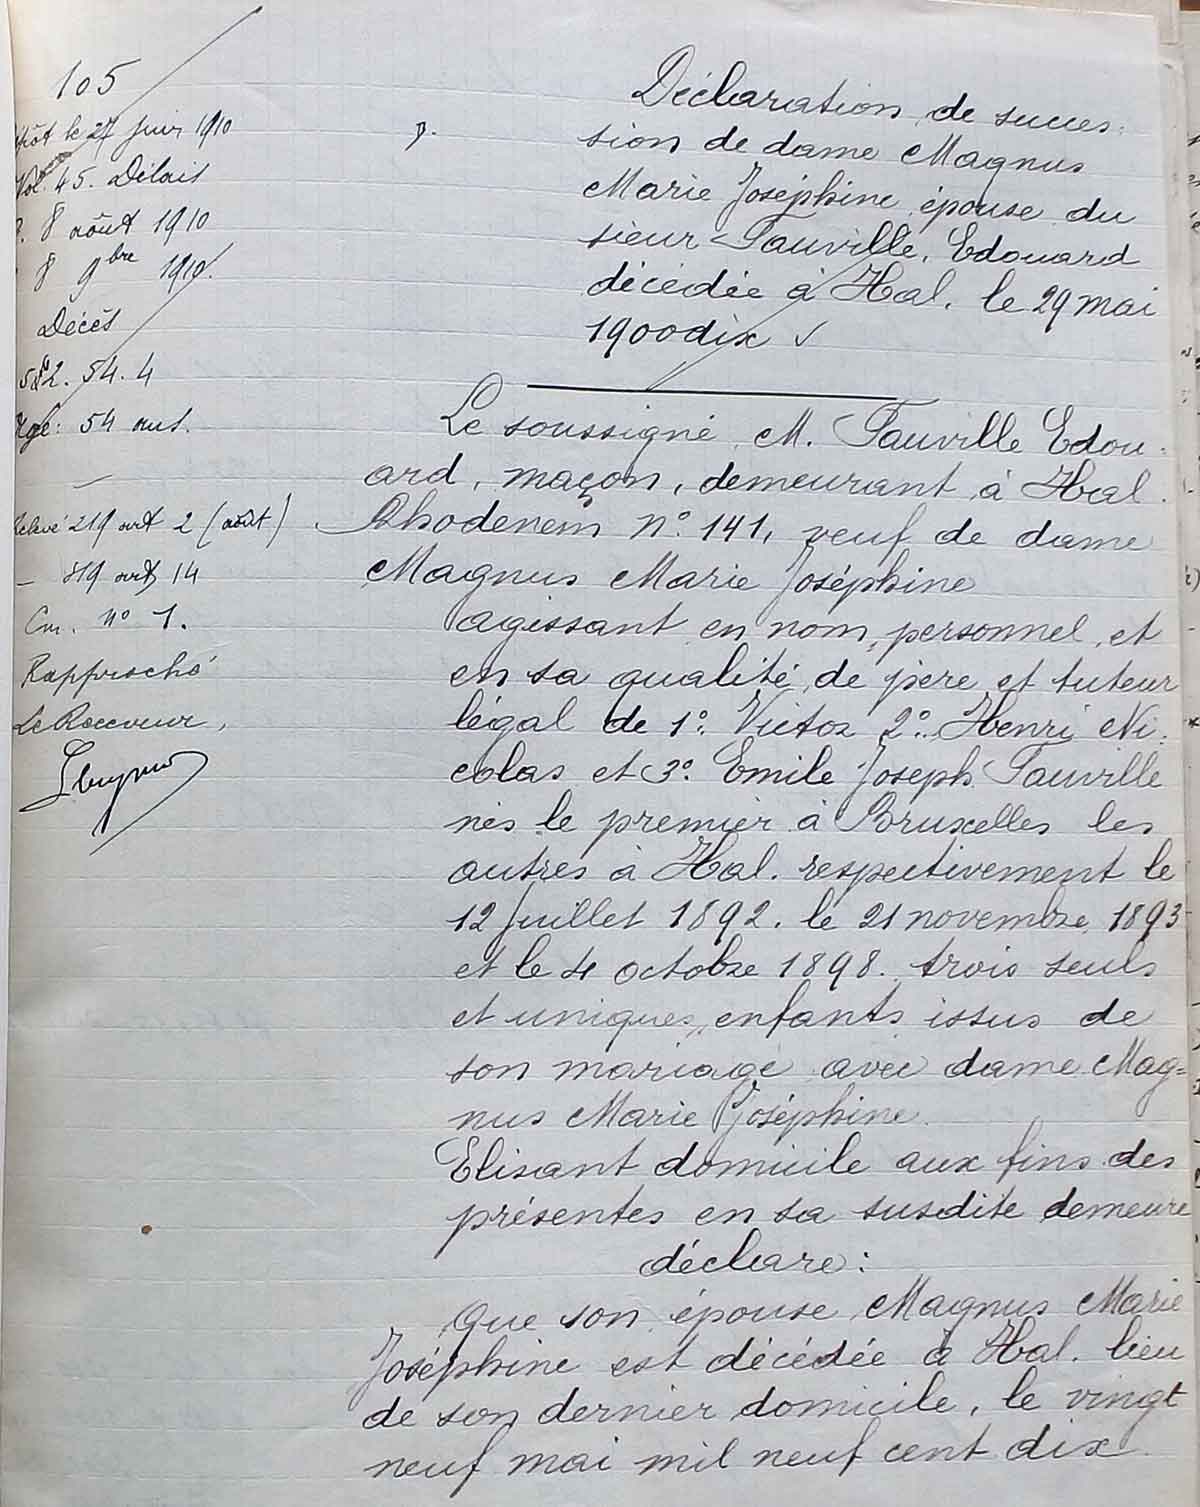 105
le 27 Juin 1910
Vol. 45. Délais
8 août 1910
8 9bre 1910.
Décès
2. 54. 4
Age: 54 ans.
Relevé 219 art 2 (août)
— 819 art 14
Cm. n° 1.
Rapproché
Le Receveur,
Déclaration de succes-
sion de dame Magnus
Marie Joséphine épouse du
sieur Fauville, Edouard
décédée à Hal. le 29 mai
1900dix
Le soussigné M. Fauville Edou-
ard, maçon, demeurant à Hal.
Rhodenem N° 141, veuf de dame
Magnus Marie Joséphine
agissant en nom personnel et
en sa qualité de père et tuteur
légal de 1° Victor 2° Henri Ni-
colas et 3° Emile Joseph Fauville
nés le premier à Bruxelles les
autres à Hal. respectivement le
12 Juillet 1892. le 21 novembre 1893
et le 4 octobre 1898. trois seuls
et uniques enfants issus de
son mariage avec dame Mag=
nus Marie Joséphine
Elisant domicile aux fins des
présentes en sa susdite demeure
déclare:
Que son épouse Magnus Marie
Joséphine est décédée à Hal. lieu
de son dernier domicile, le vingt
neuf mai mil neuf cent dix